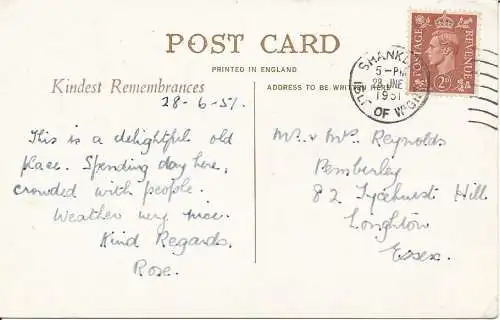 POST CARD
PRINTED IN ENGLAND
Kindest Remembrances
ADDRESS TO BE WRITTEN HERE
28-6-51.
This is a delightful old
place. Spending day here,
crowded with people.
Weather very nice.
Kind Regards.
Rose.
Mr. & Mrs. Reynolds
Pemberley
82 Tycehurst Hill
Loughton
Essex.
SHANKLIN
5-PM
28 JNE
1951
ISLE OF WIGHT
POSTAGE
REVENUE
2D